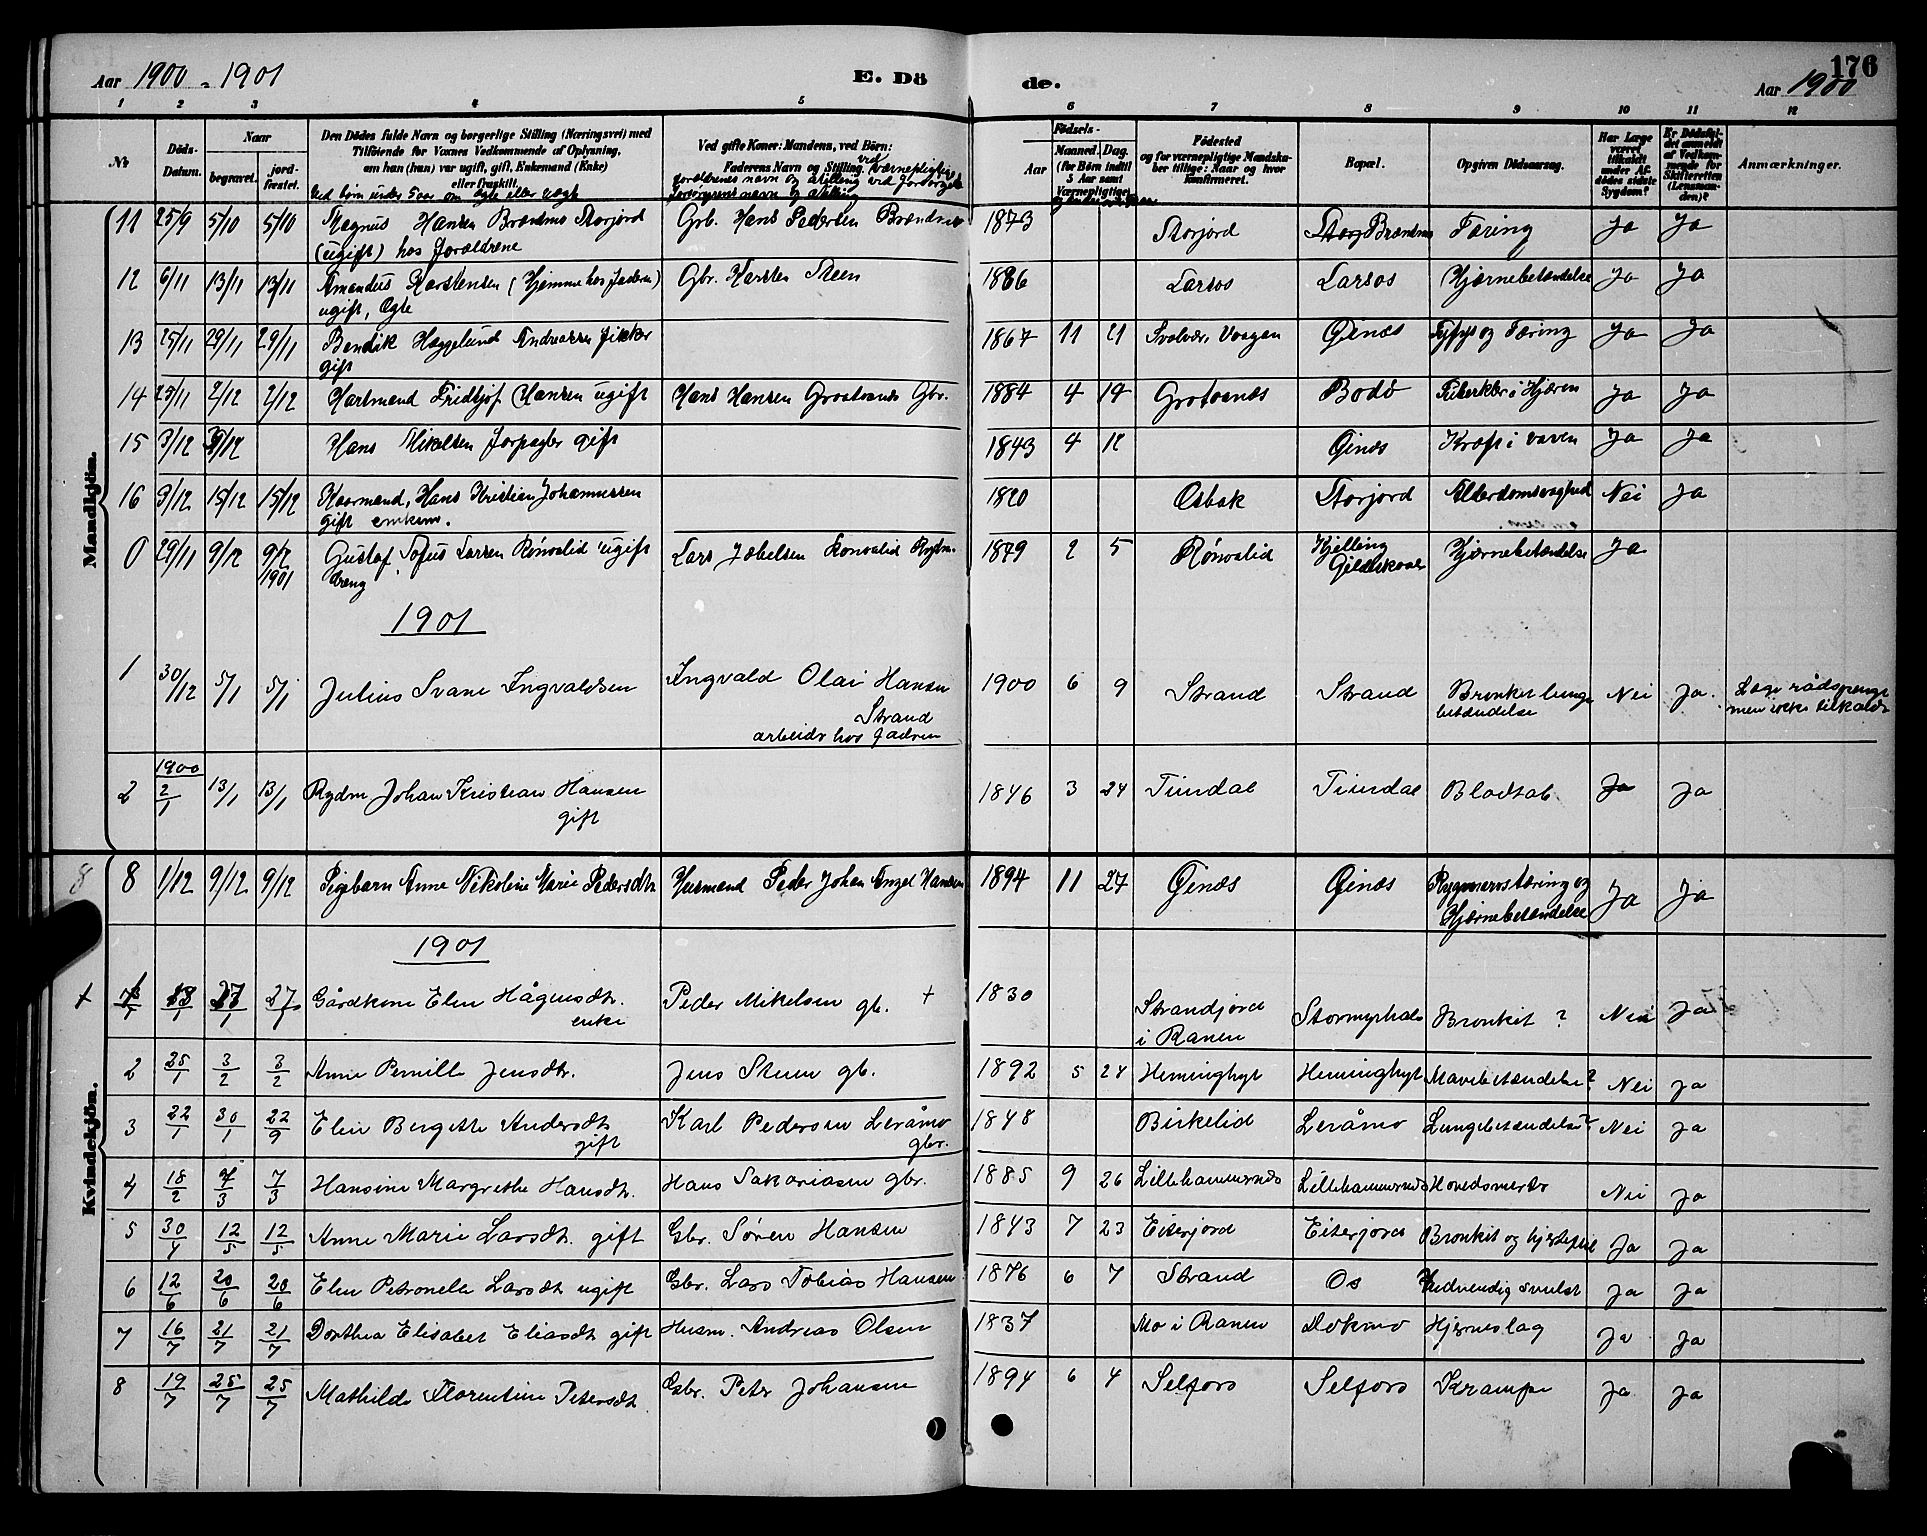 Aar 1900 - 1901 E. Dö de. Aar 1900 176
1 2 3 4 5 6 7 8 9 10 11 12
No Döds-Datum. Naar begravet. jordfæstet.
Den Dödes fulde Navn og borgerlige Stilling (Næringsvei) med
Tilföiende for Voxnes Vedkommende af Oplysning,
om han (hun) var ugift, gift, Enkemand (Enke)
eller fraskilt.
Ved börn under 5 aar om ægte eller uægte
Ved gifte Koner: Mandens, ved Börn:
Faderens Navn og Stilling. ved værnepligtige
forældrenes navn og stilling ved forsörgede
forsörgerens navn og stilling
Födsels-
Aar Maaned. Dag.
(for Börn indtil
5 Aar samt
Værnepligtige)
Födested
og for værnepligtige Mandskaber
tillige: Naar og hvor
konfirmeret.
Bopæl.
Opgiven Dödsaarsag.
Har Læge
været
tilkaldt
under Afdödes
sidste
Sygdom?
Er Dödsfaldet
anmeldt
af Vedkommende
for
Skifteretten
(Lensmanden)?
Anmærkninger.
Mandkjön.
11 25/9 5/10 5/10 Magnus Hansen Brændmo Storjord Grb. Hans Pedersen Brændmo 1873 Storjord Brændmo Tæring Ja Ja
(ugift) hos forældrene
12 6/11 13/11 13/11 Amandus Karstensen (Hjemme hos faderen) Gbr. Karsten Steen 1886 Larsos Larsos Hjærnebetændelse Ja Ja
ugift, Ægte
13 25/11 29/11 29/11 Bendik Hæggelund Andreassen fisker 1867 11 21 Svolvær, Vaagan Finæs Tyfys og Tæring Ja Ja
gift
14 23/11 2/12 2/12 Hartmand Fridtjof Hansen ugift Hans Hansen Groatvands Gbr. 1884 4 19 Grotvands Bodö Tuberkler i Hjæren Ja Ja
15 3/12 9/12 Hans Mikelsen forpagter gift 1843 4 12 Finæs Kræft i Ja Ja
16 9/12 15/12 15/12 Kaarmand, Hans Kristian Johannessen 1820 Osbak Storjord Alderdomsvaghed Nei Ja
gift enkem.
0 29/11 9/12 9/2 1901 Gustaf Tofus Larsen Rönvalid ugift Lars Jakelsen Ronvalid Rydm. 1879 2 5 Rönvalid Kjelling Gildeskaal Hjærnebetændelse Ja
dreng
1901
1 30/12 5/1 5/1 Julius Svane Ingvaldsen Ingvald Olai Hansen 1900 6 9 Strand Strand Bronkit lunge Nei Ja. Læge rådspurgt
Strand betændelse men ikke tilkaldt
arbeider hos fadren
1900
2 2/1 13/1 13/1 Rydm Johan Kristian Hansen 1846 3 24 Tiundal Tiundal Blodtab Ja Ja
gift
Kvindekjön.
8 8 1/12 9/12 9/12 Pigebarn Anne Nikoline Marie Pedersdtr Husmand Peder Johan Angel Hansen 1894 11 27 Finæs Finæs Rygmarvstæring og Ja Ja
Hjærnebetændelse
1901
+ 1 27/1 27/1 Gårdkone Elen Hågensdtr. Peder Mikelsen gb. + 1830 Strandjord Stormyrhals Bronkit ? Nei Ja
enke i Ranen
2 25/1 3/2 3/2 Anne Pernille Jensdtr. Jens Steen gb. 1892 5 24 Heminghyt Heminghyt Mavebetændelse? Nei Ja
3 22/1 30/1 22/9 Elen Bergitte Andersdtr Karl Pedersen Leråmo 1848 Birkelid Leråmo Lungebetændelse? Nei Ja
gift gbr.
4 18/2 7/3 7/3 Hansine Margrethe Hansdtr. Hans Sakariasen gbr. 1885 9 26 Lillehammernæs Lillehammernæs Hovedsmerte Nei Ja
5 30/4 12/5 12/5 Anne Marie Larsdtr. gift Gbr. Sören Hansen 1843 7 23 Eiterjord Eiterjord Bronkit og hjertefeil Ja Ja
6 12/6 20/6 20/6 Elen Petronella Larsdtr ugift Gbr. Lars Tobias Hansen 1876 6 7 Strand Os Indvendig svulst Ja Ja
7 16/7 21/7 21/7 Dorthea Elisabet Eliasdtr gift Husm. Andreas Olsen 1837 Mo i Ranen Dokmo Hjerneslag Ja Ja
8 19/7 25/7 25/7 Mathilde Florentine Petersdtr. Gbr. Peter Johansen 1894 6 4 Selfors Selfors Krampe Ja Ja